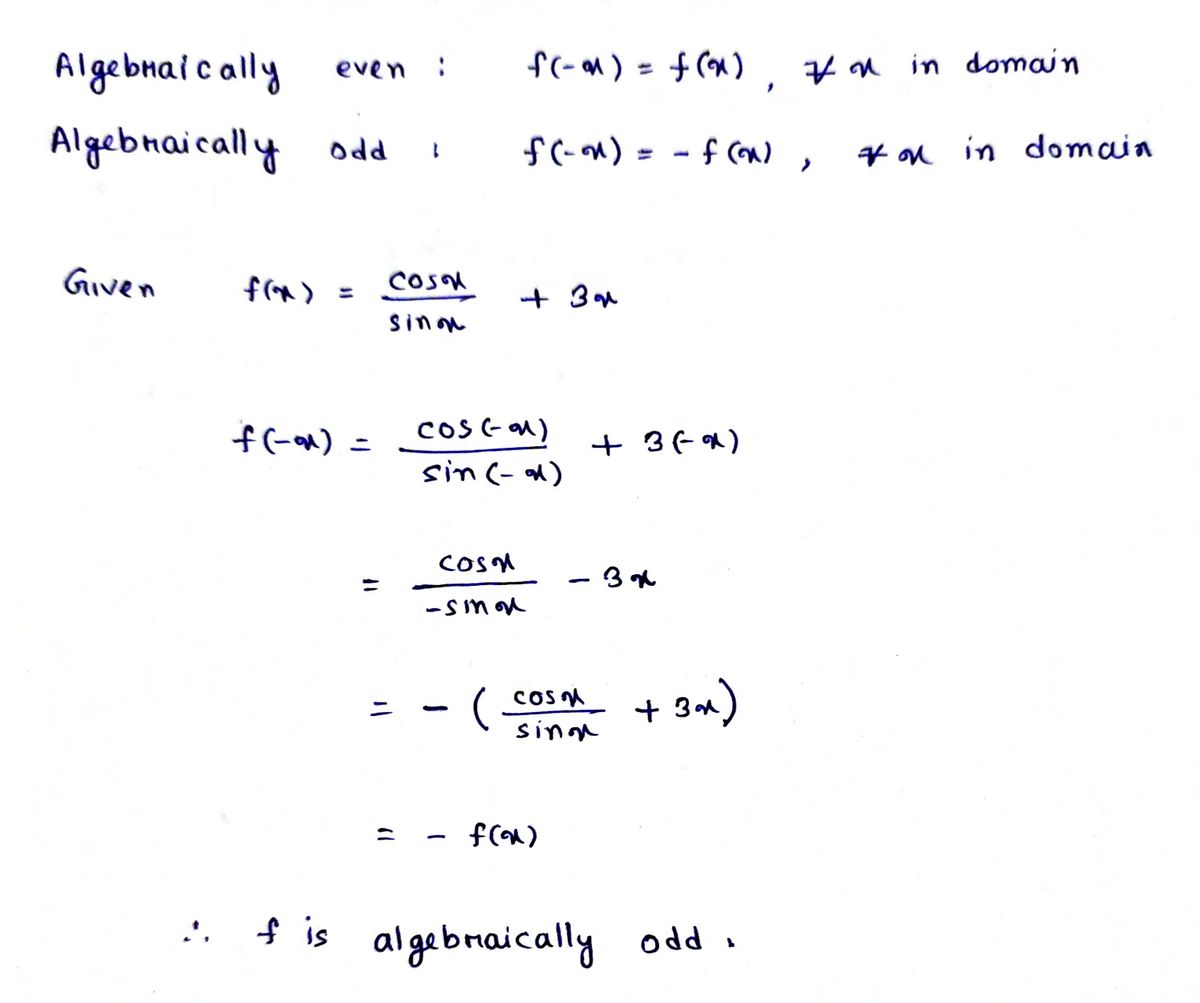 Algebraically even : f(-x) = f(x) , ∀ x in domain
Algebraically odd : f(-x) = - f(x) , ∀ x in domain
Given f(x) = cosx/sinx + 3x
f(-x) = cos(-x)/sin(-x) + 3(-x)
= cosx/-sinx - 3x
= - ( cosx/sinx + 3x)
= - f(x)
∴ f is algebraically odd .